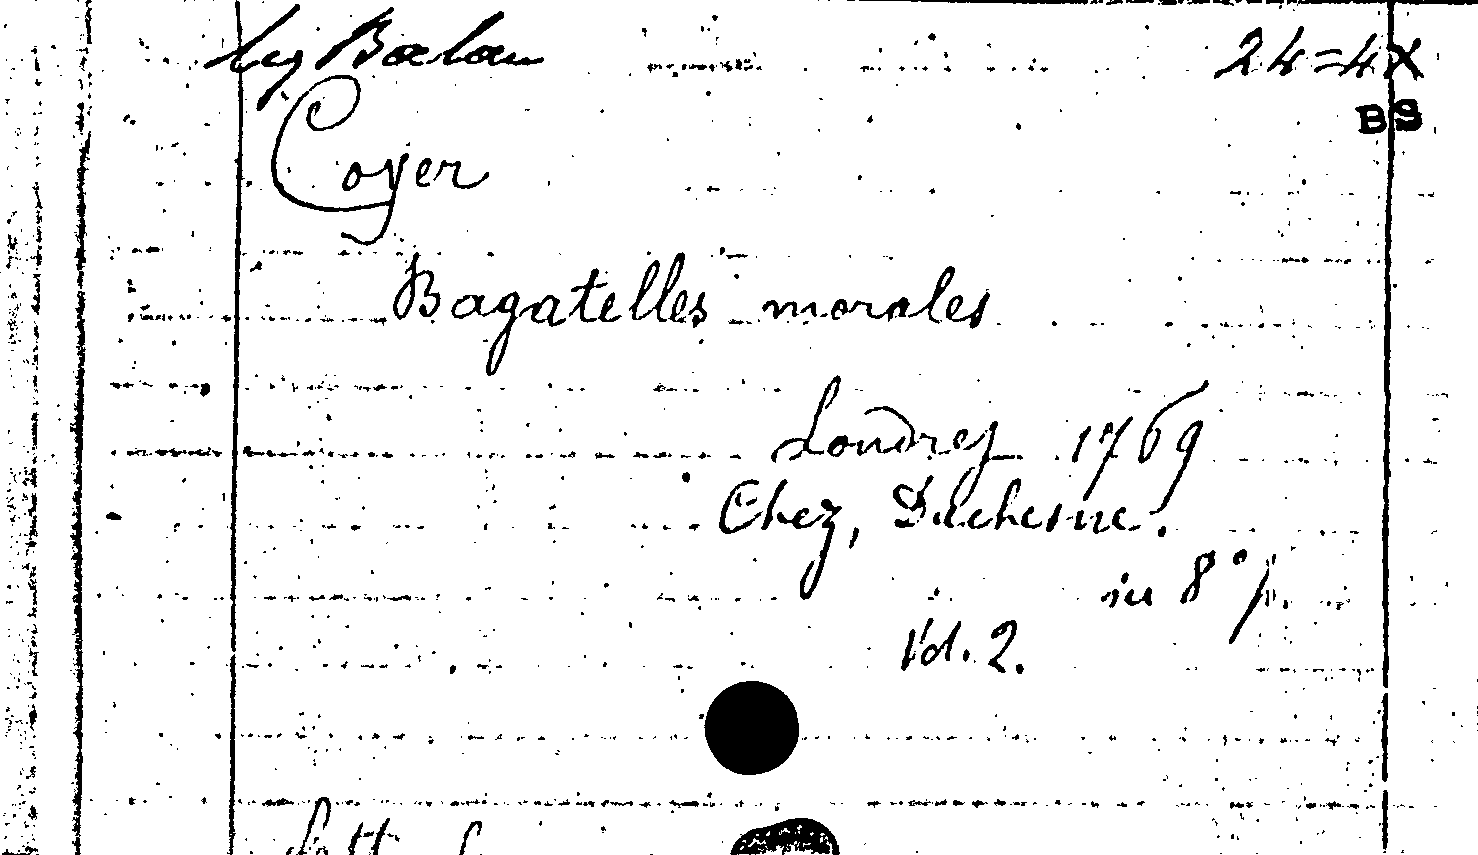 Leg Balan 24=4X
BS
Coyer
Bagatelles morales
Londres 1769
Chez, Duchesne.
in 8° p.
Vol. 2.